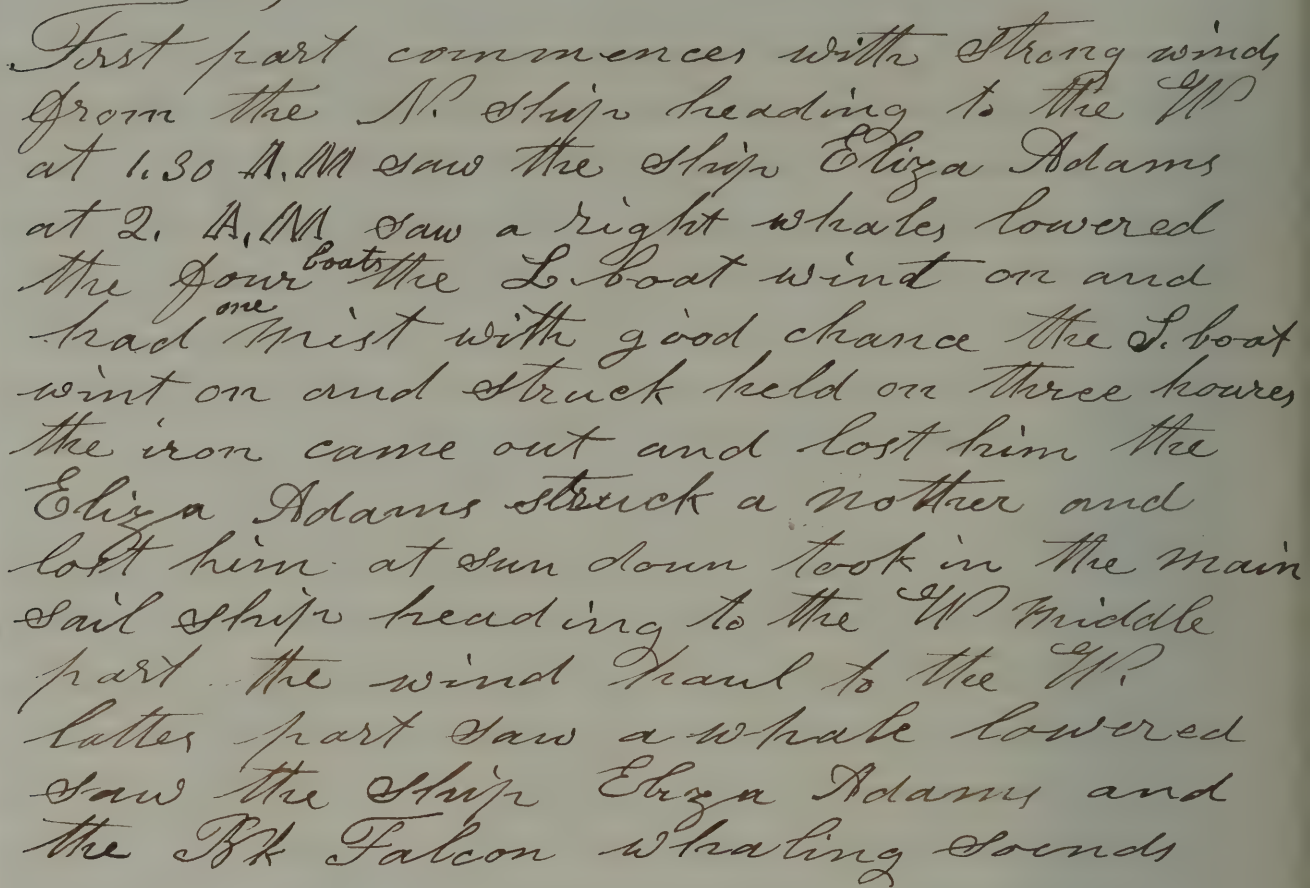 First part commences with Strong winds
from the N. Ship heading to the W
at 1.30 A.M saw the Ship Eliza Adams
at 2. A.M saw a right whales lowered
the four boats the L boat wint on and
had one mist with good chance the S. boat
wint on and struck held on three houres
the iron came out and lost him the
Eliza Adams struck a nother and
lost him at sun down took in the main
Sail Ship heading to the W Middle
part the wind haul to the W.
latter part Saw a whale lowered
Saw the Ship Eliza Adams and
the Bk Falcon whaling Sounds